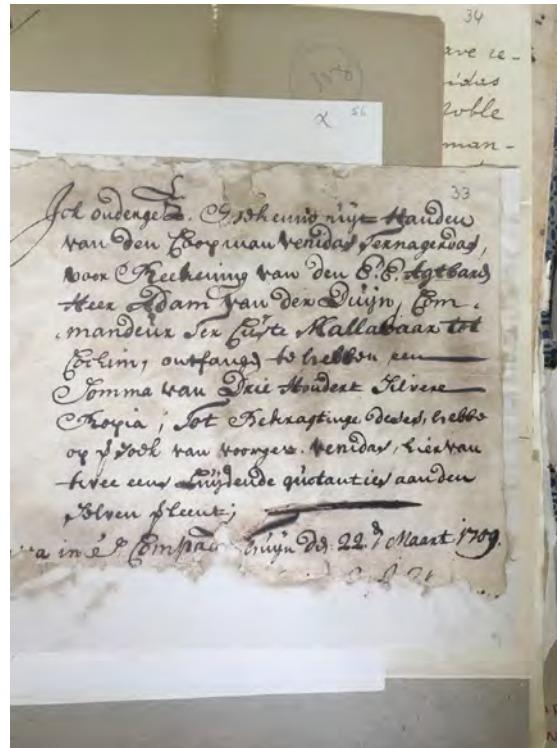 34
ave re-
idas
noble
man-
56
33
Ick onderget. Bekenne uijt Handen
van den Coopman Venidas Ternagerdas,
voor Reekening van den E. E. Agtbare
Heer Adam van der Duijn, Com-
mandeur Ter Custe Mallabaar tot
Cochim, ontfangen te hebben een
Somma van Drie Hondert Silvere
Ropia; Tot Bekragtinge deses, hebbe
op versoek van voorgen. Venidas, hier van
twee eens Luijdende quotanties aan den
selven verleent;
a in 's E. Comp Huijs Den 22.e Maart 1709.